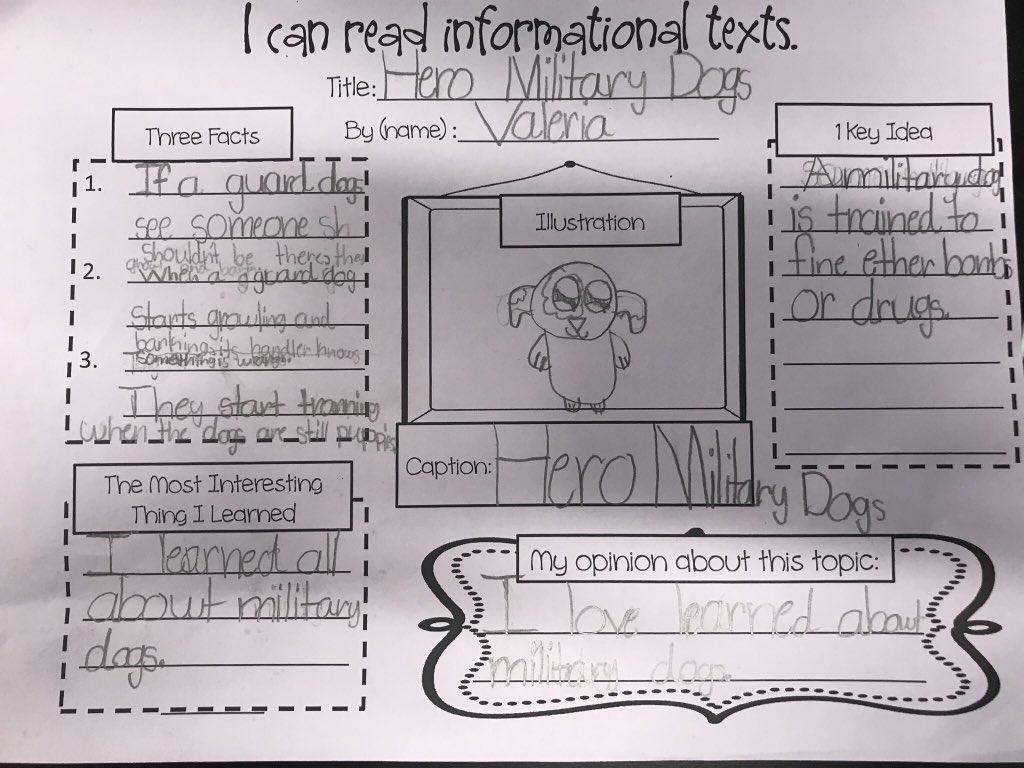 I can read informational texts.
Title: Hero Military Dogs
By (name): Valeria
Three Facts
1. If a guard dogs
see someone sh
shouldn't be there, they
2. When a guard dog
starts growling and
barking, its handler knows
3. something is wrong.
They start traning
when the dogs are still puppies
The Most Interesting
Thing I Learned
I learned all
about military
dogs.
Illustration
Caption: Hero Military Dogs
1 Key Idea
military dog
is trained to
fine ether bombs
or drugs.
My opinion about this topic:
I love learned about
military dogs.